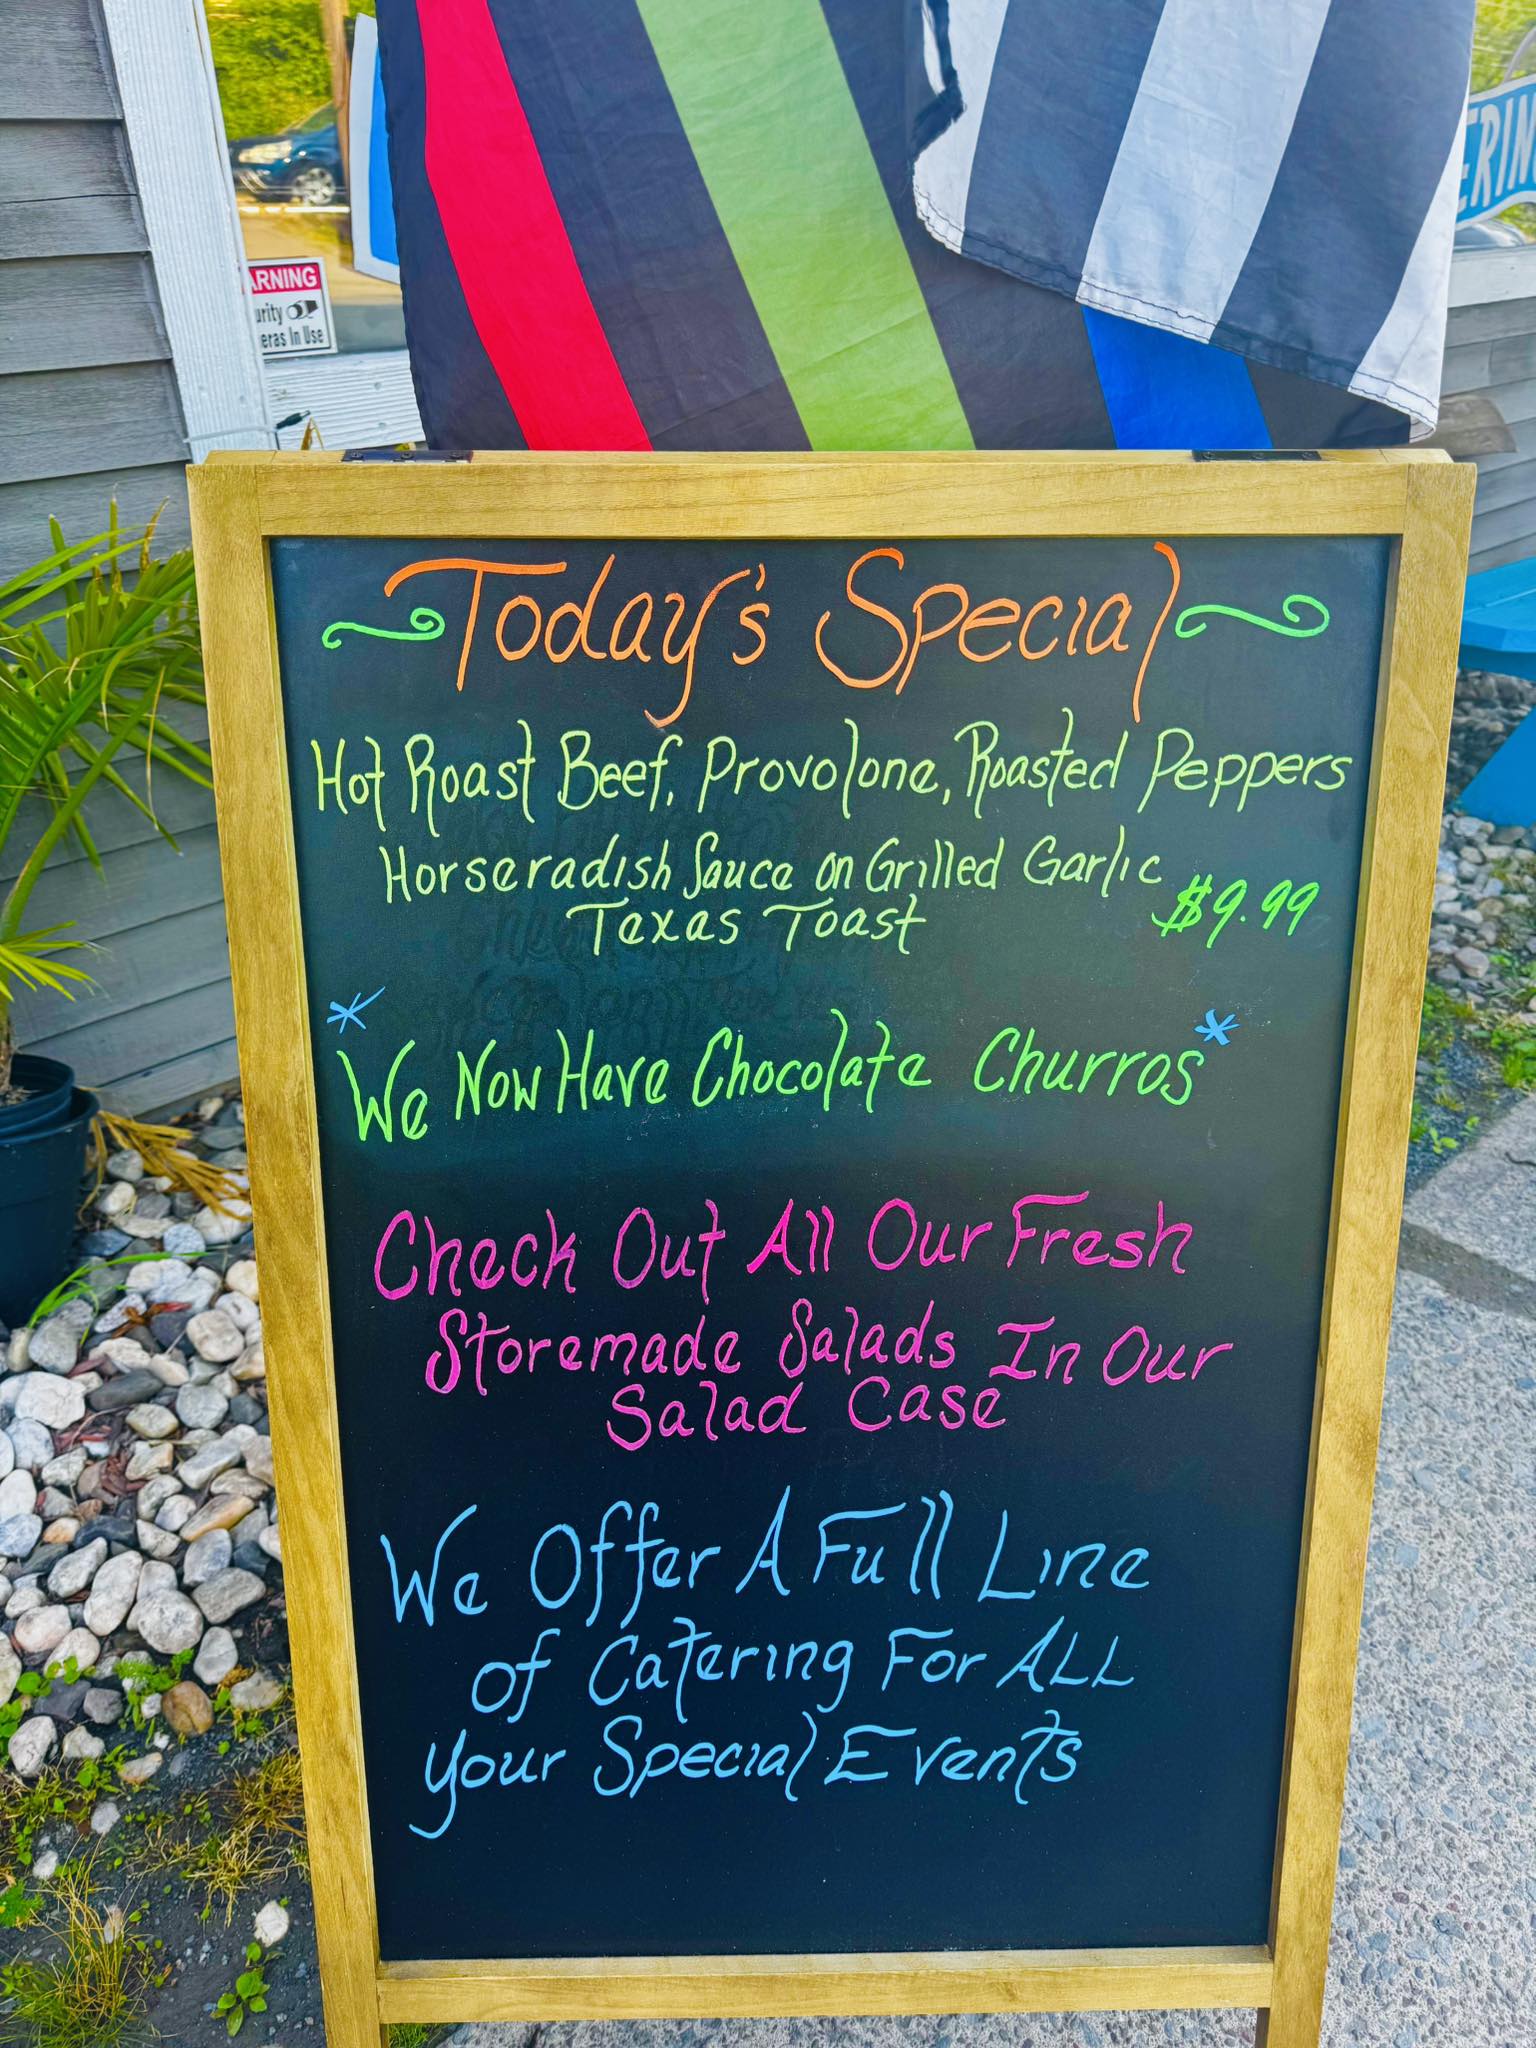 ERIN
ARNING
urity
eras In Use
Today's Special
Hot Roast Beef, Provolone, Roasted Peppers
Horseradish Sauce on Grilled Garlic
Texas Toast $9.99
* We Now Have Chocolate Churros *
Check Out All Our Fresh
Storemade Salads In Our
Salad Case
We Offer A Full Line
of Catering For ALL
your Special Events